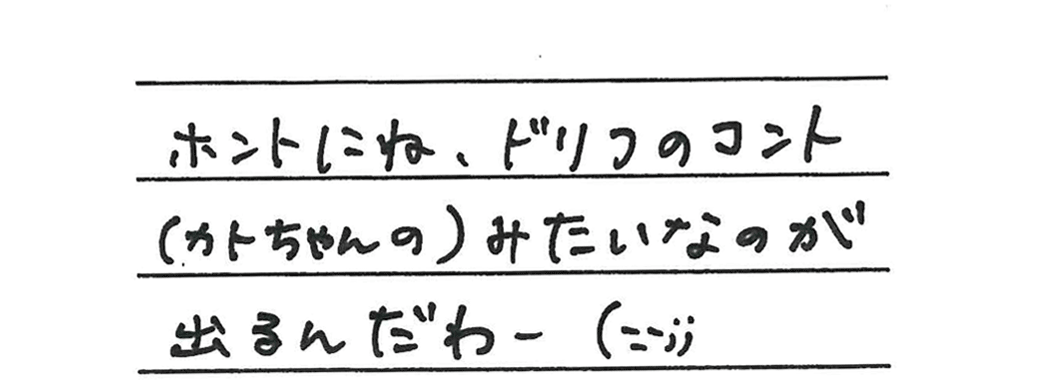 ホントにね、ドリフのコント
(カトちゃんの)みたいなのが
出るんだわー (--;;